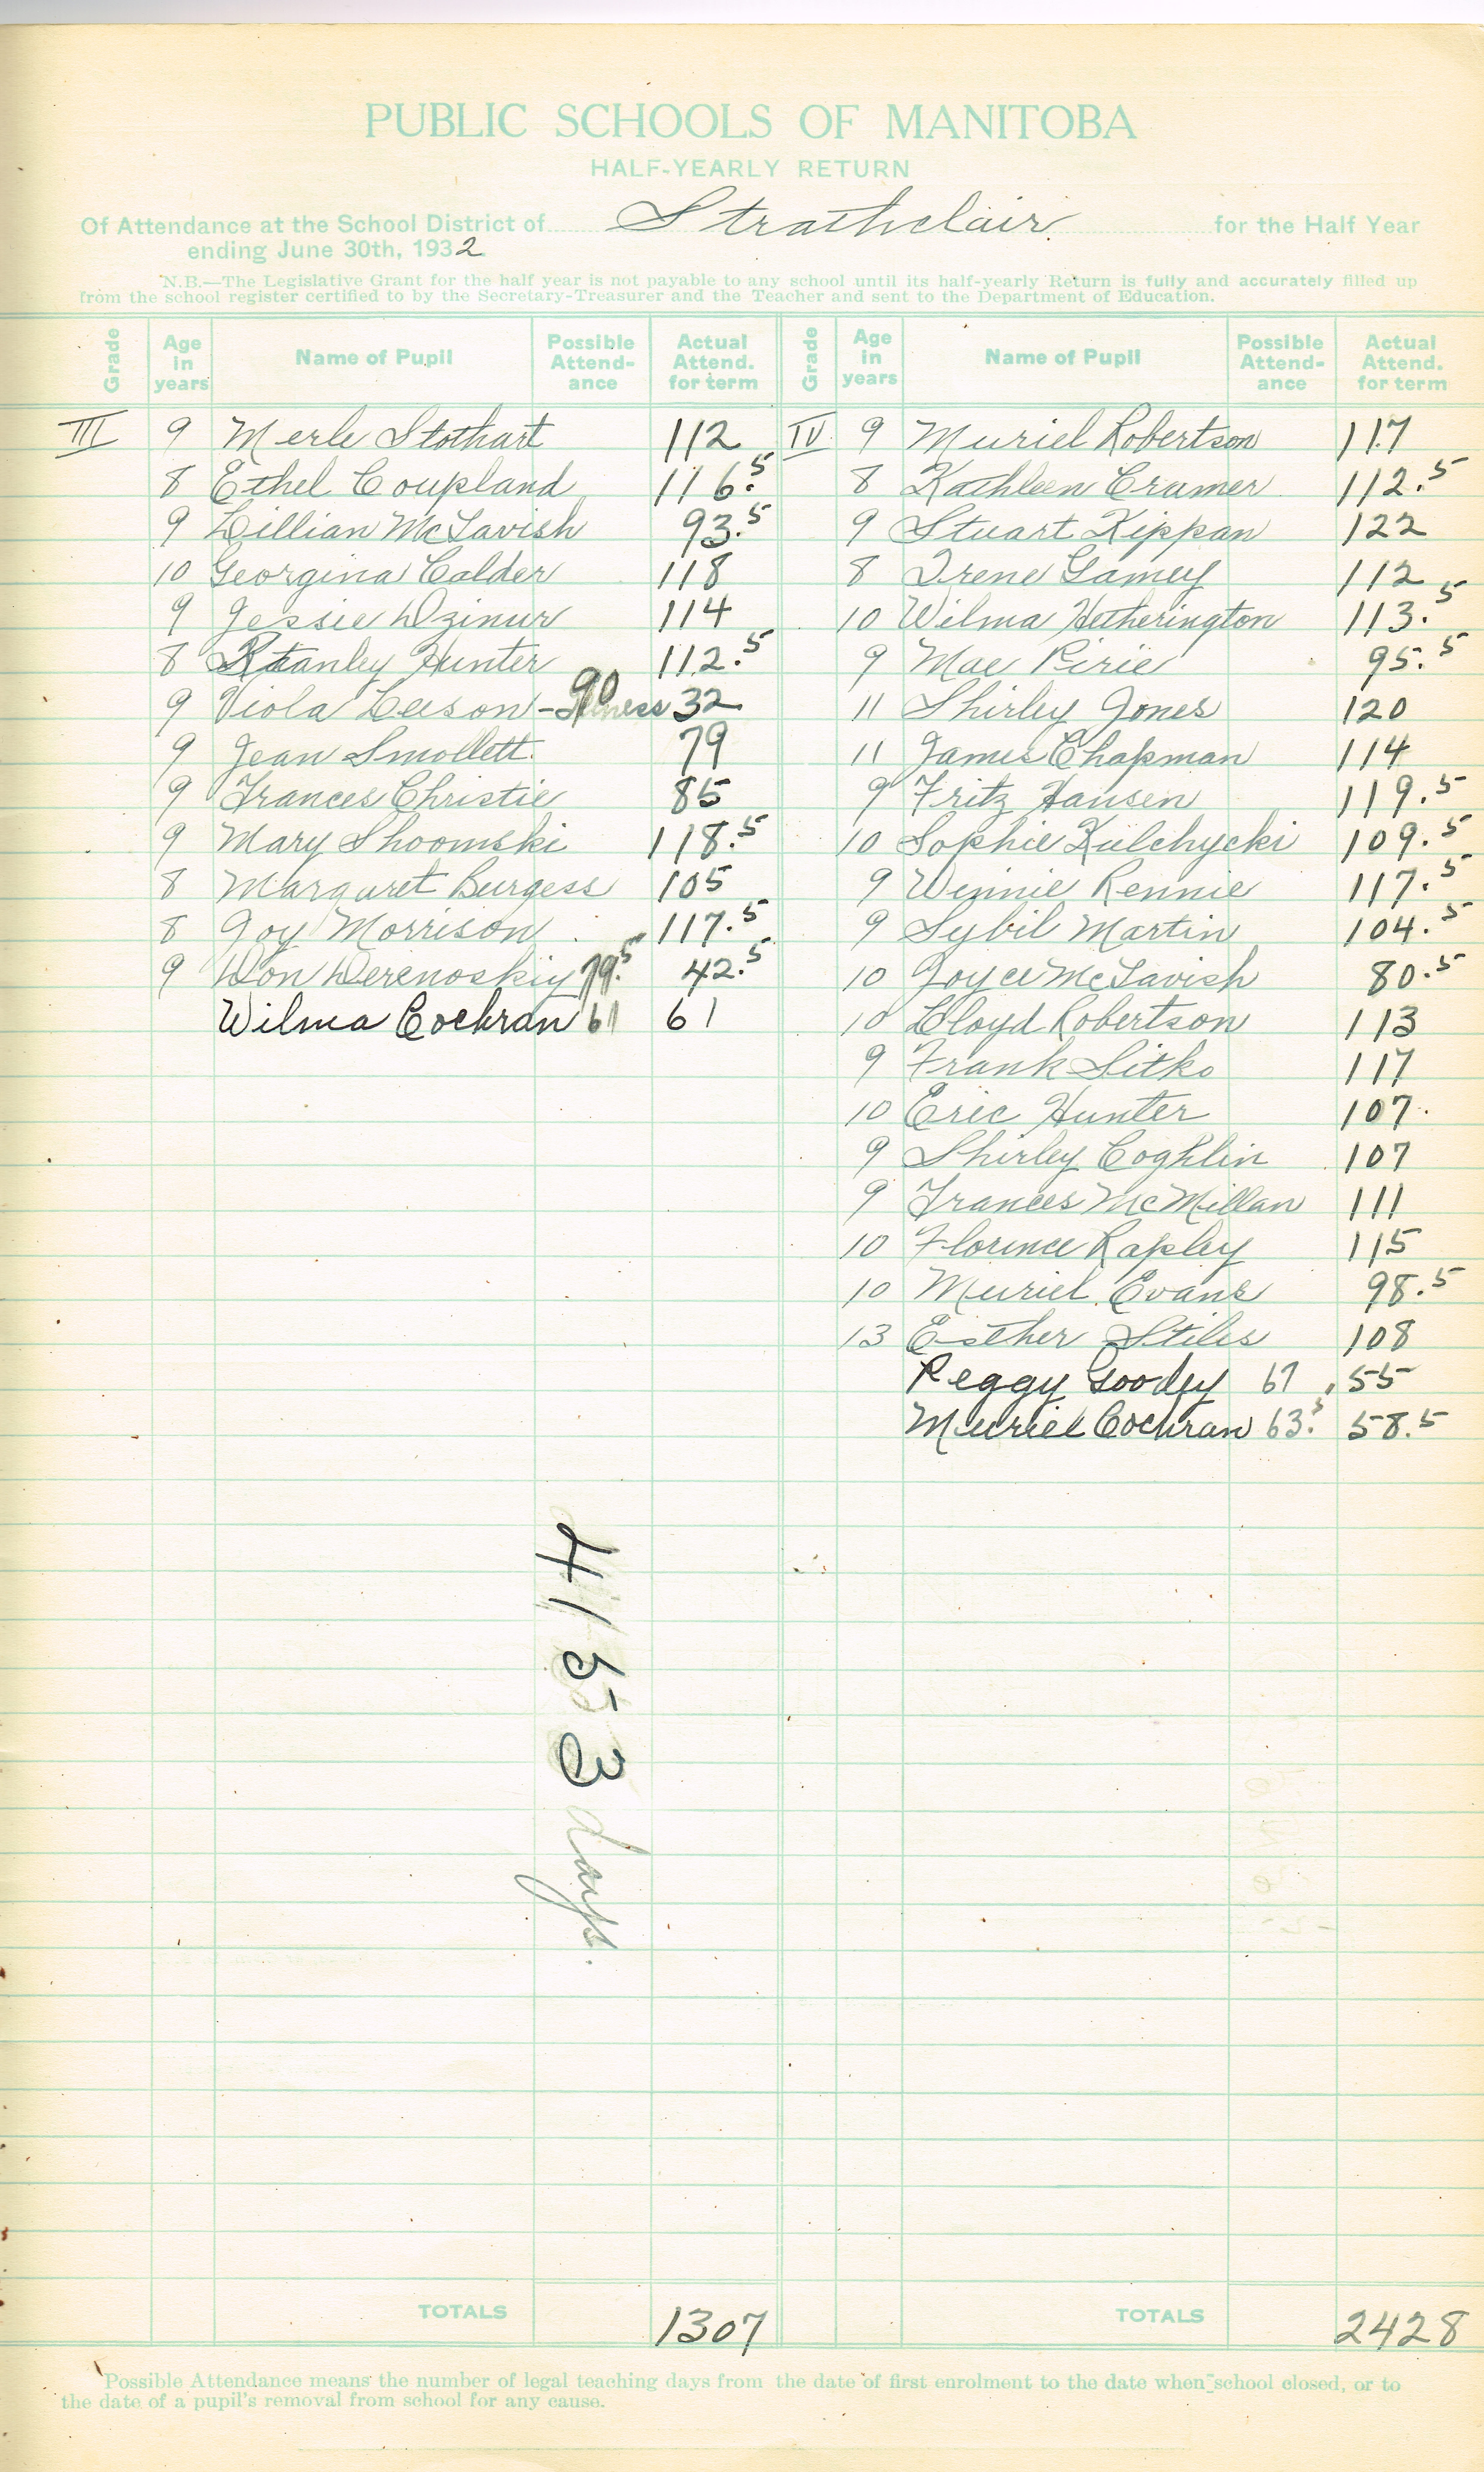 PUBLIC SCHOOLS OF MANITOBA
HALF-YEARLY RETURN
Of Attendance at the School District of Strathclair for the Half Year
ending June 30th, 1932
N.B.—The Legislative Grant for the half year is not payable to any school until its half-yearly Return is fully and accurately filled up
from the school register certified to by the Secretary-Treasurer and the Teacher and sent to the Department of Education.
Grade Age in years Name of Pupil Possible Attend-ance Actual Attend. for term
III 9 Merle Stothart 112
8 Ethel Coupland 116.5
9 Lillian McTavish 93.5
10 Georgina Calder 118
9 Jessie Dzinur 114
8 Stanley Hunter 112.5
9 Viola Leeson - Illness 90 32
9 Jean Smollett 79
9 Frances Christie 85
9 Mary Shoomski 118.5
8 Margaret Burgess 105
8 Joy Morrison 117.5
9 Don Derenoskiy 79.5 42.5
Wilma Cochran 61 61
TOTALS 1307
4153 days.
Grade Age in years Name of Pupil Possible Attend-ance Actual Attend. for term
IV 9 Muriel Robertson 117
8 Kathleen Cramer 112.5
9 Stuart Kippan 122
8 Irene Gamey 112
10 Wilma Hetherington 113.5
9 Mae Pirie 95.5
11 Shirley Jones 120
11 James Chapman 114
9 Fritz Hansen 119.5
10 Sophie Kulchycki 109.5
9 Winnie Rennie 117.5
9 Sybil Martin 104.5
10 Joyce McTavish 80.5
10 Lloyd Robertson 113
9 Frank Sitko 117
10 Eric Hunter 107.
9 Shirley Coghlin 107
9 Frances McMillan 111
10 Florence Rapley 115
10 Muriel Evans 98.5
13 Esther Stiles 108
Peggy Goodey 67 55
Muriel Cochran 63.5 58.5
TOTALS 2428
Possible Attendance means the number of legal teaching days from the date of first enrolment to the date when school closed, or to
the date of a pupil's removal from school for any cause.